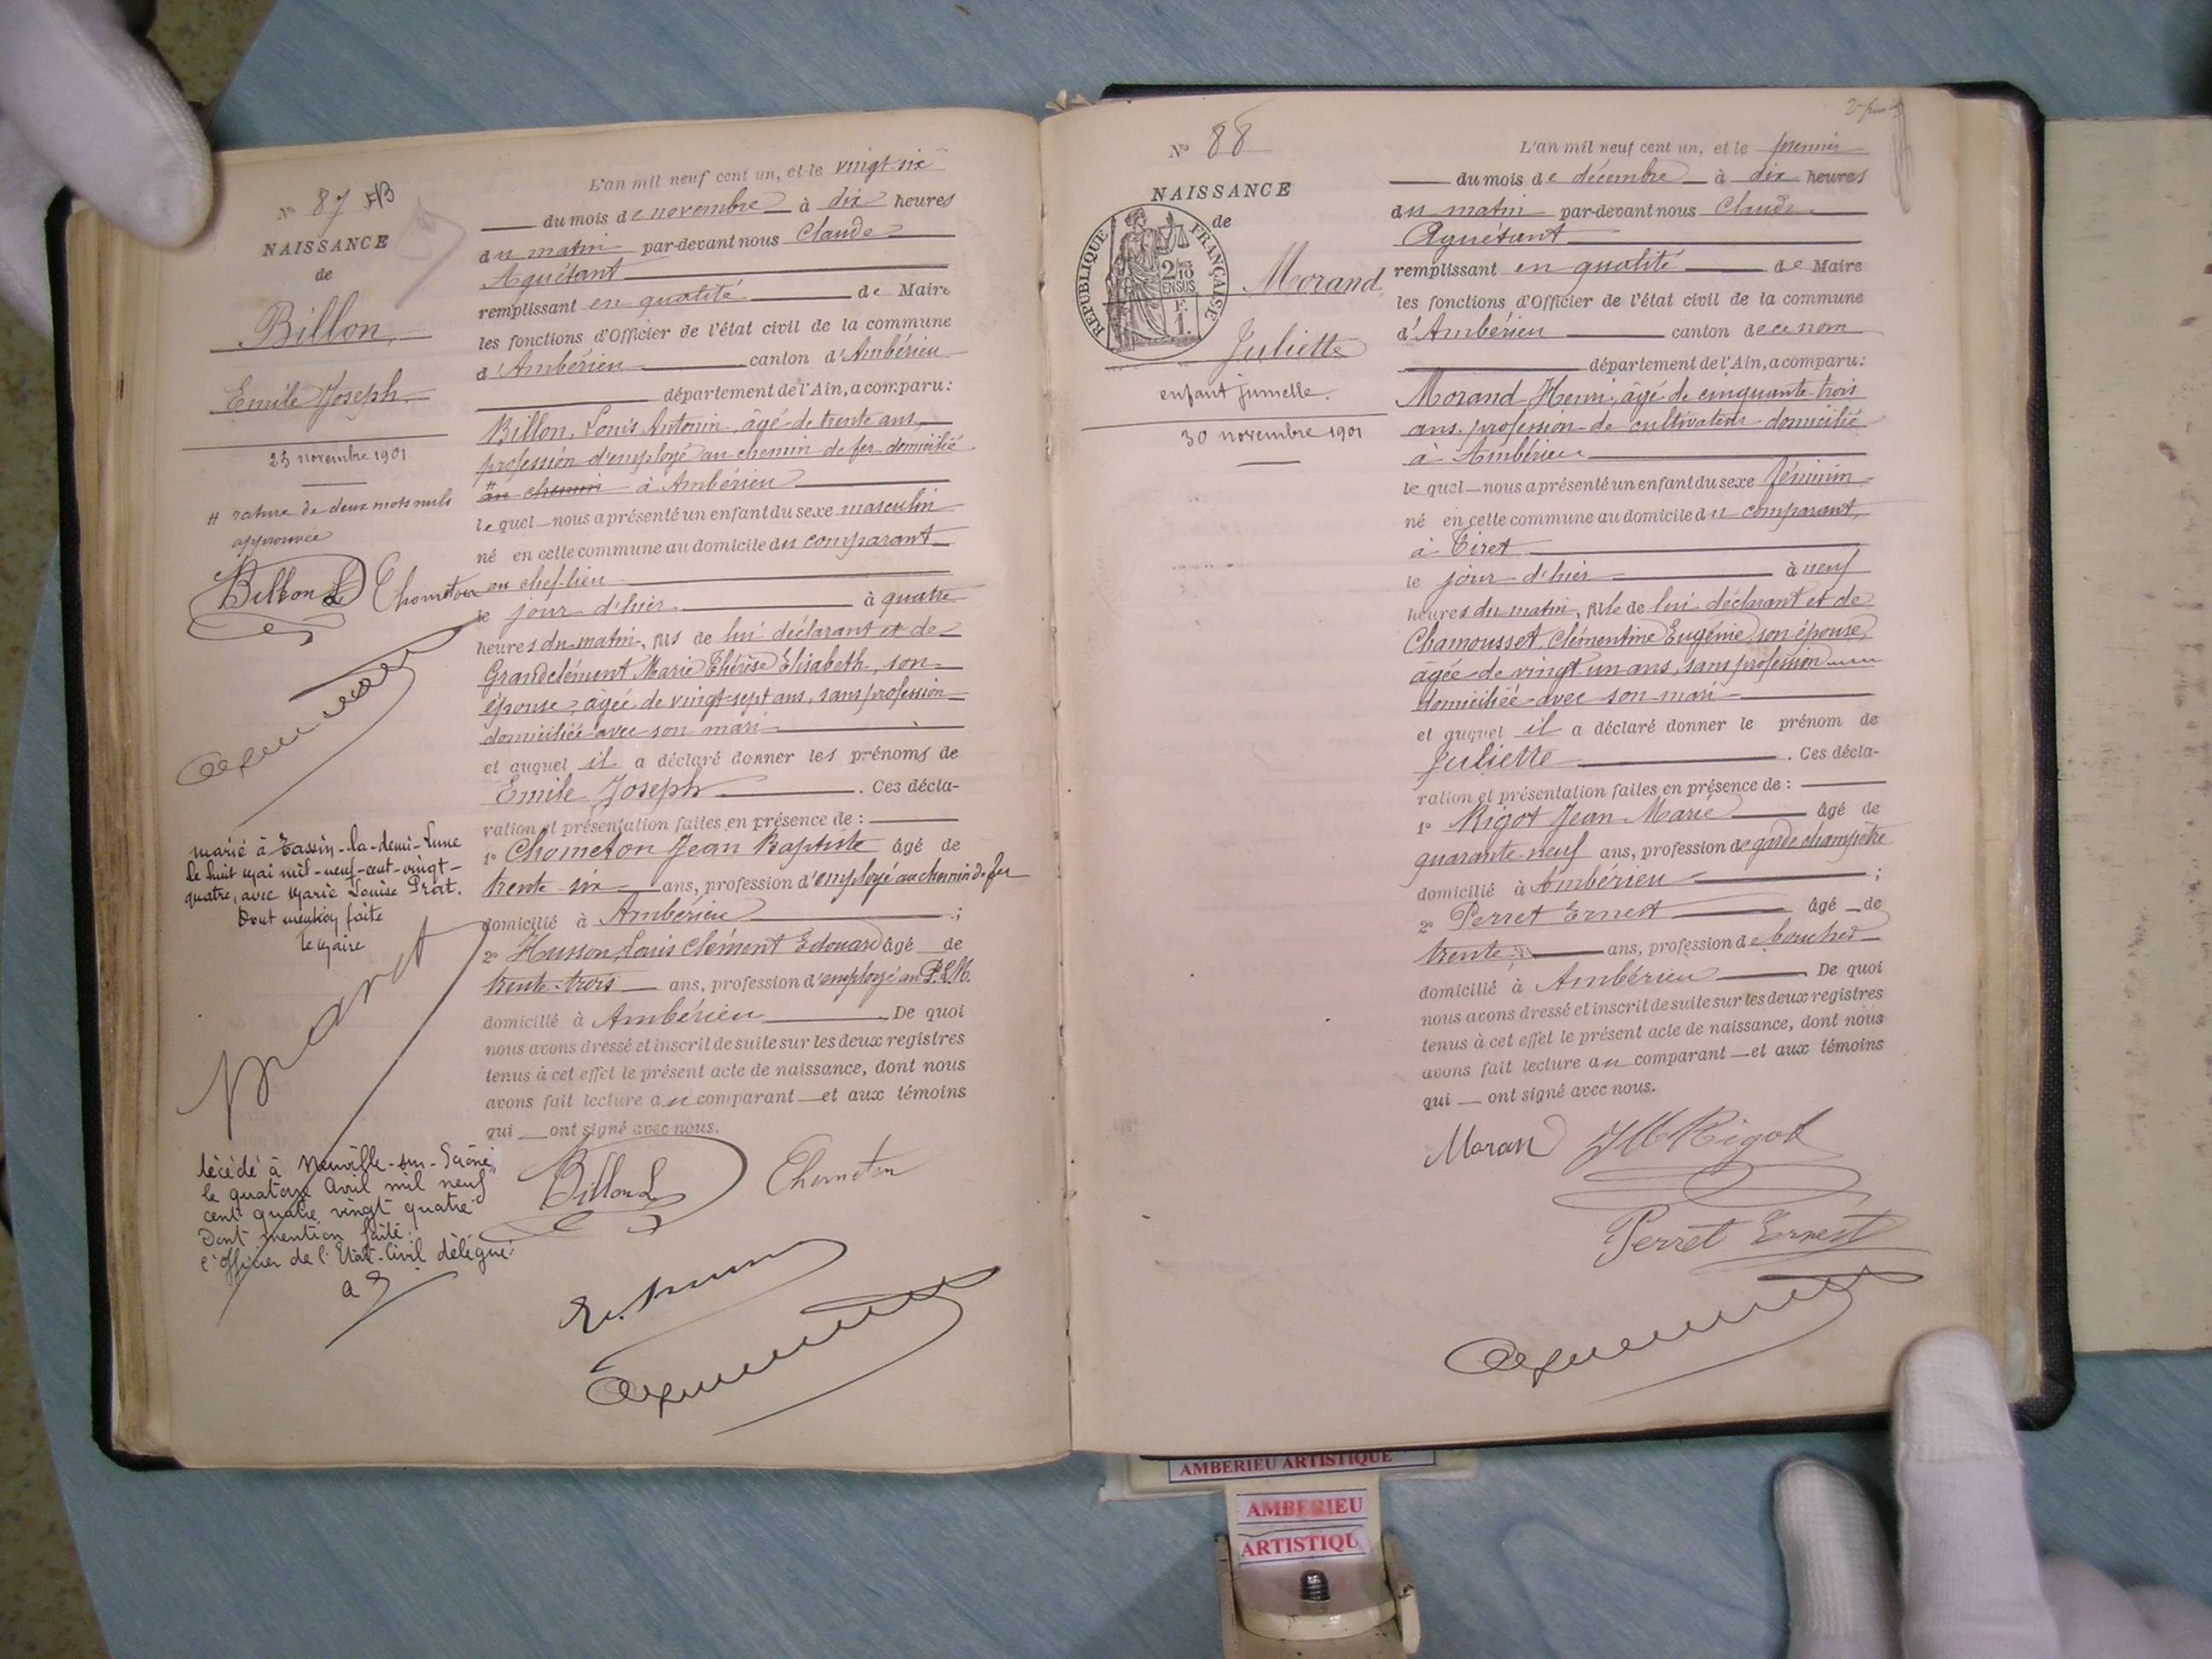 N° 87
NAISSANCE
de
Billon,
Emile Joseph.
25 novembre 1901.
# rature de deux mots nuls
approuvée
Billon L Chometon
marié à Tassin-la-demi-Lune
le huit mai mil-neuf-cent-vingt-
quatre, avec Marie Louise Prat.
Dont mention faite
le Maire
décédé à Neuville-sur-Saône,
le quatorze Avril mil neuf
cent quatre vingt quatre
Dont mention faite:
l'officier de l'Etat-Civil délégué
L'an mil neuf cent un, et le vingt-six
du mois de novembre à dix heures
du matin par-devant nous Claude
Aguétant
remplissant en qualité de Maire
les fonctions d'Officier de l'état civil de la commune
d'Ambérieu canton d'Ambérieu
département de l'Ain, a comparu:
Billon, Louis Antonin, âgé de trente ans,
profession d'employé au chemin de fer domicilié
# au chemin à Ambérieu
lequel nous a présenté un enfant du sexe masculin
né en cette commune au domicile du comparant
au chef-lieu
le jour d'hier à quatre
heures du matin, fils de lui déclarant et de
Grandclément Marie Thérèse Elisabeth, son
épouse, âgée de vingt-sept ans, sans profession
domiciliée avec son mari
et auquel il a déclaré donner les prénoms de
Emile Joseph. Ces décla-
ration et présentation faites en présence de:
1° Chometon Jean Baptiste âgé de
trente-six ans, profession d'employé au chemin de fer
domicilié à Ambérieu;
2° Husson, Louis Clément Edouard âgé de
trente-trois ans, profession d'employé au P.L.M.
domicilié à Ambérieu. De quoi
nous avons dressé et inscrit de suite sur les deux registres
tenus à cet effet le présent acte de naissance, dont nous
avons fait lecture au comparant et aux témoins
qui ont signé avec nous.
Billon L Chometon
2e
N° 88
NAISSANCE
de
RÉPUBLIQUE FRANÇAISE
2/10
EN SUS
F.
1.
Morand
Juliette
enfant jumelle.
30 novembre 1901
L'an mil neuf cent un, et le premier
du mois de décembre à dix heures
du matin par-devant nous Claude
Aguétant
remplissant en qualité de Maire
les fonctions d'Officier de l'état civil de la commune
d'Ambérieu canton de ce nom
département de l'Ain, a comparu:
Morand Henri, âgé de cinquante-trois
ans, profession de cultivateur domicilié
à Ambérieu
lequel nous a présenté un enfant du sexe féminin
né en cette commune au domicile du comparant,
à Tiret
le jour d'hier à neuf
heures du matin, fille de lui déclarant et de
Chamousset, Clémentine Eugénie, son épouse,
âgée de vingt-un ans, sans profession
domiciliée avec son mari
et auquel il a déclaré donner le prénom de
Juliette. Ces décla-
ration et présentation faites en présence de:
1° Rigot Jean Marie âgé de
quarante-neuf ans, profession de garde champêtre
domicilié à Ambérieu;
2° Perret Ernest âgé de
trente ans, profession de boucher
domicilié à Ambérieu De quoi
nous avons dressé et inscrit de suite sur les deux registres
tenus à cet effet le présent acte de naissance, dont nous
avons fait lecture au comparant et aux témoins
qui ont signé avec nous.
Morand JM Rigot
Perret Ernest
AMBERIEU ARTISTIQUE
AMBERIEU
ARTISTIQU